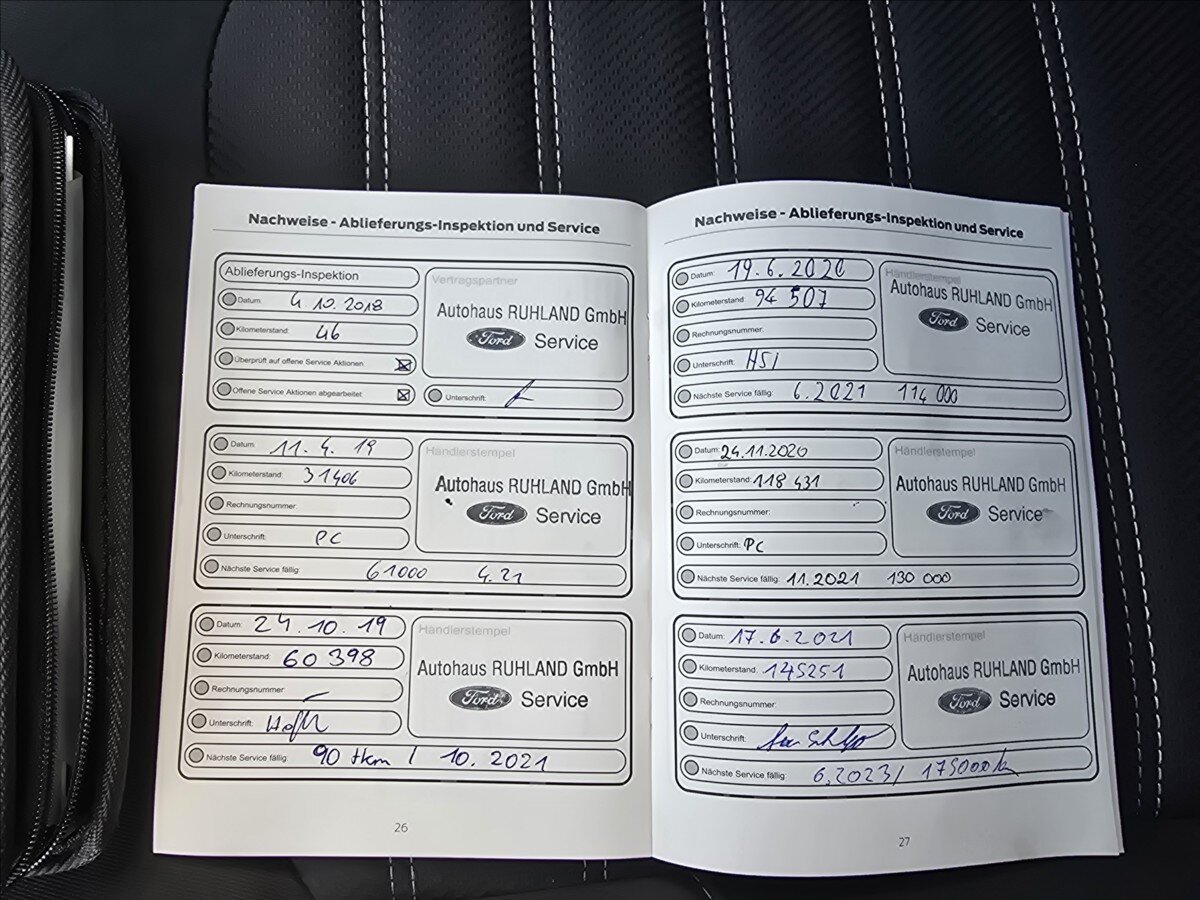 Nachweise - Ablieferungs-Inspektion und Service
Ablieferungs-Inspektion
Datum: 4.10.2018
Kilometerstand: 46
Überprüft auf offene Service Aktionen
Offene Service Aktionen abgearbeitet
Vertragspartner
Autohaus RUHLAND GmbH
Ford Service
Unterschrift:
Datum: 11.4.19
Kilometerstand: 31406
Rechnungsnummer:
Unterschrift: PC
Nächste Service fällig: 61000 4.21
Händlerstempel
Autohaus RUHLAND GmbH
Ford Service
Datum: 24.10.19
Kilometerstand: 60 398
Rechnungsnummer
Unterschrift:
Nächste Service fällig: 90 tkm / 10.2021
Händlerstempel
Autohaus RUHLAND GmbH
Ford Service
26
Nachweise - Ablieferungs-Inspektion und Service
Datum: 19.6.2020
Kilometerstand: 94 507
Rechnungsnummer:
Unterschrift: HSI
Nächste Service fällig: 6.2021 114 000
Händlerstempel
Autohaus RUHLAND GmbH
Ford Service
Datum: 24.11.2020
Kilometerstand: 118 431
Rechnungsnummer:
Unterschrift: PC
Nächste Service fällig: 11.2021 130 000
Händlerstempel
Autohaus RUHLAND GmbH
Ford Service
Datum: 17.6.2021
Kilometerstand: 145251
Rechnungsnummer:
Unterschrift:
Nächste Service fällig: 6.2023/ 175000k
Händlerstempel
Autohaus RUHLAND GmbH
Ford Service
27